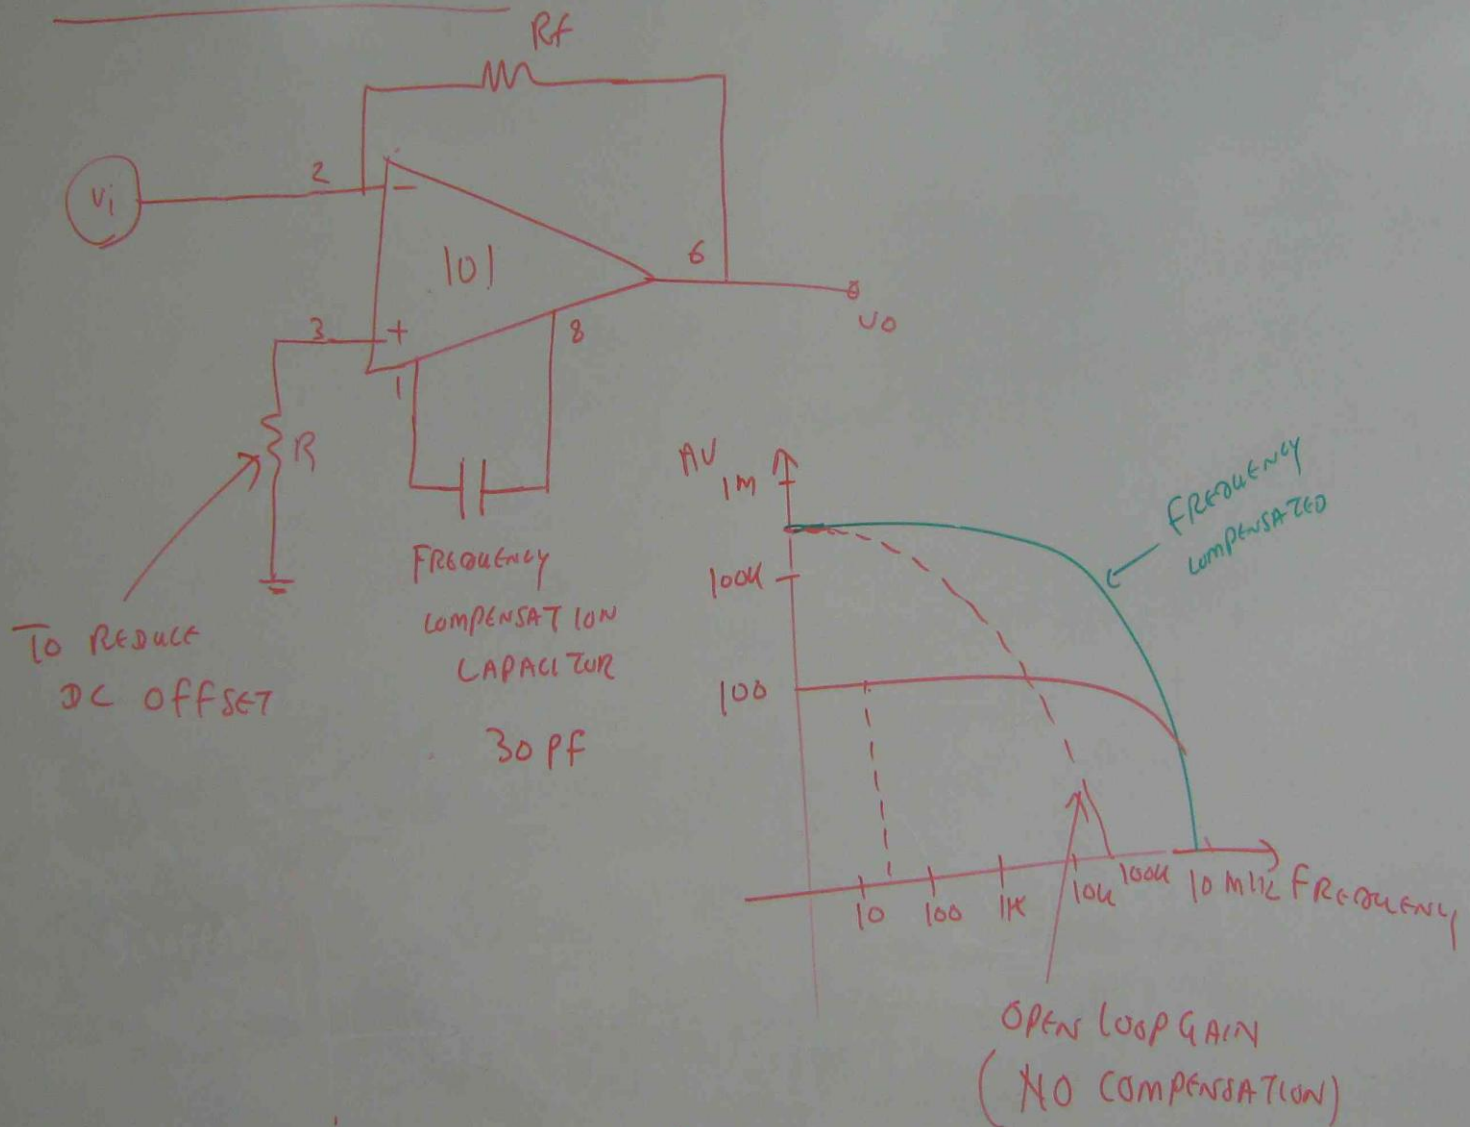 Rf
Vi
2
-
101
6
Vo
3
+
1
8
R
TO REDUCE
DC OFFSET
FREQUENCY
COMPENSATION
CAPACITOR
30 pf
AV
1M
100K
100
FREQUENCY
COMPENSATED
10
100
1K
10K
100K
10 MHz
FREQUENCY
OPEN LOOP GAIN
(NO COMPENSATION)